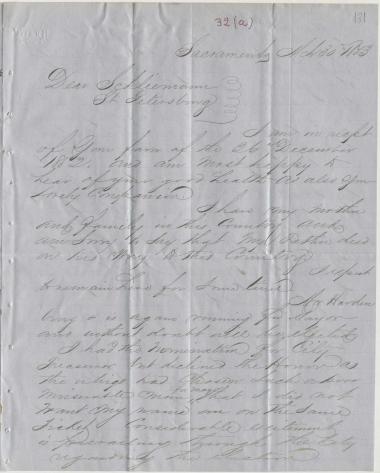 32(a)
131
Sacramento 1853
Dear Schliemann
St Petersburg
I am in receipt
of your favor of the 26th December
1852. and am most happy to
hear of your good health as also your
lovely Companion
I have my mother
and family in this Country and
am sorry to say that my Father died
on his way to this Country
I expect
to remain here for some time
Mr Harden
is again running for Mayor
and without doubt will be elected
I had the Nomination for City
Treasurer but declined the Honor as
the whigs had chosen such a
Miserable that I did not
want my name on the same
Ticket Considerable excitement
is through the City
regarding the Election